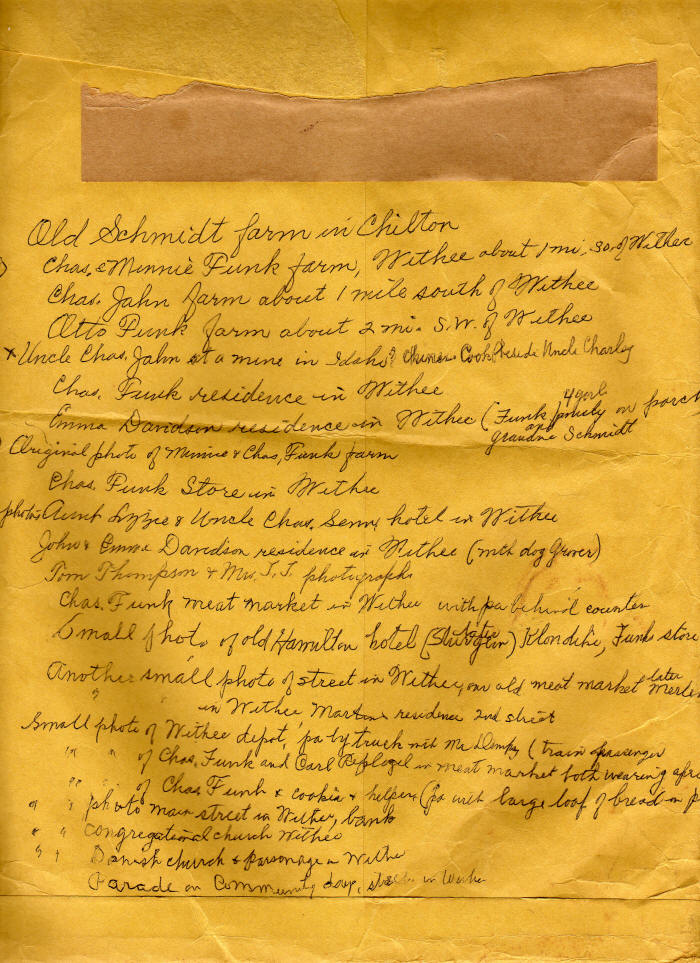 Old Schmidt farm in Chilton
Chas. & Minnie Funk farm, Withee about 1 mi. so. of Withee
Chas. Jahn farm about 1 mile south of Withee
Otto Funk farm about 2 mi. S.W. of Withee
x Uncle Chas. Jahn at a mine in Idaho? Chinese Cook beside Uncle Charley
Chas. Funk residence in Withee
Emma Davidson residence in Withee (Funk family on porch
and
grandma Schmidt
Original photo of Minnie & Chas, Funk farm
Chas. Funk Store in Withee
photo Aunt Lizzie & Uncle Chas. hotel in Withee
John & Emma Davidson residence in Withee (with dog Grover)
Tom Thompson & Mrs. T.T. photographs
Chas. Funk meat market in Withee with pa behind counter
Small photo of old Hamilton hotel (later Klondike, Funk store
Another small photo of street in Withee, our old meat market later
" " in Withee residence 2nd street
Small photo of Withee depot, pa by truck with Mr (train passenger
" " of Chas. Funk and Carl in meat market both wearing
" " of Chas. Funk & cookie & helpers (pa with large loaf of bread in
" " photo main street in Withee, bank
" " Congregational church Withee
" " Danish church & parsonage in Withee
Parade on Community day, in Withee